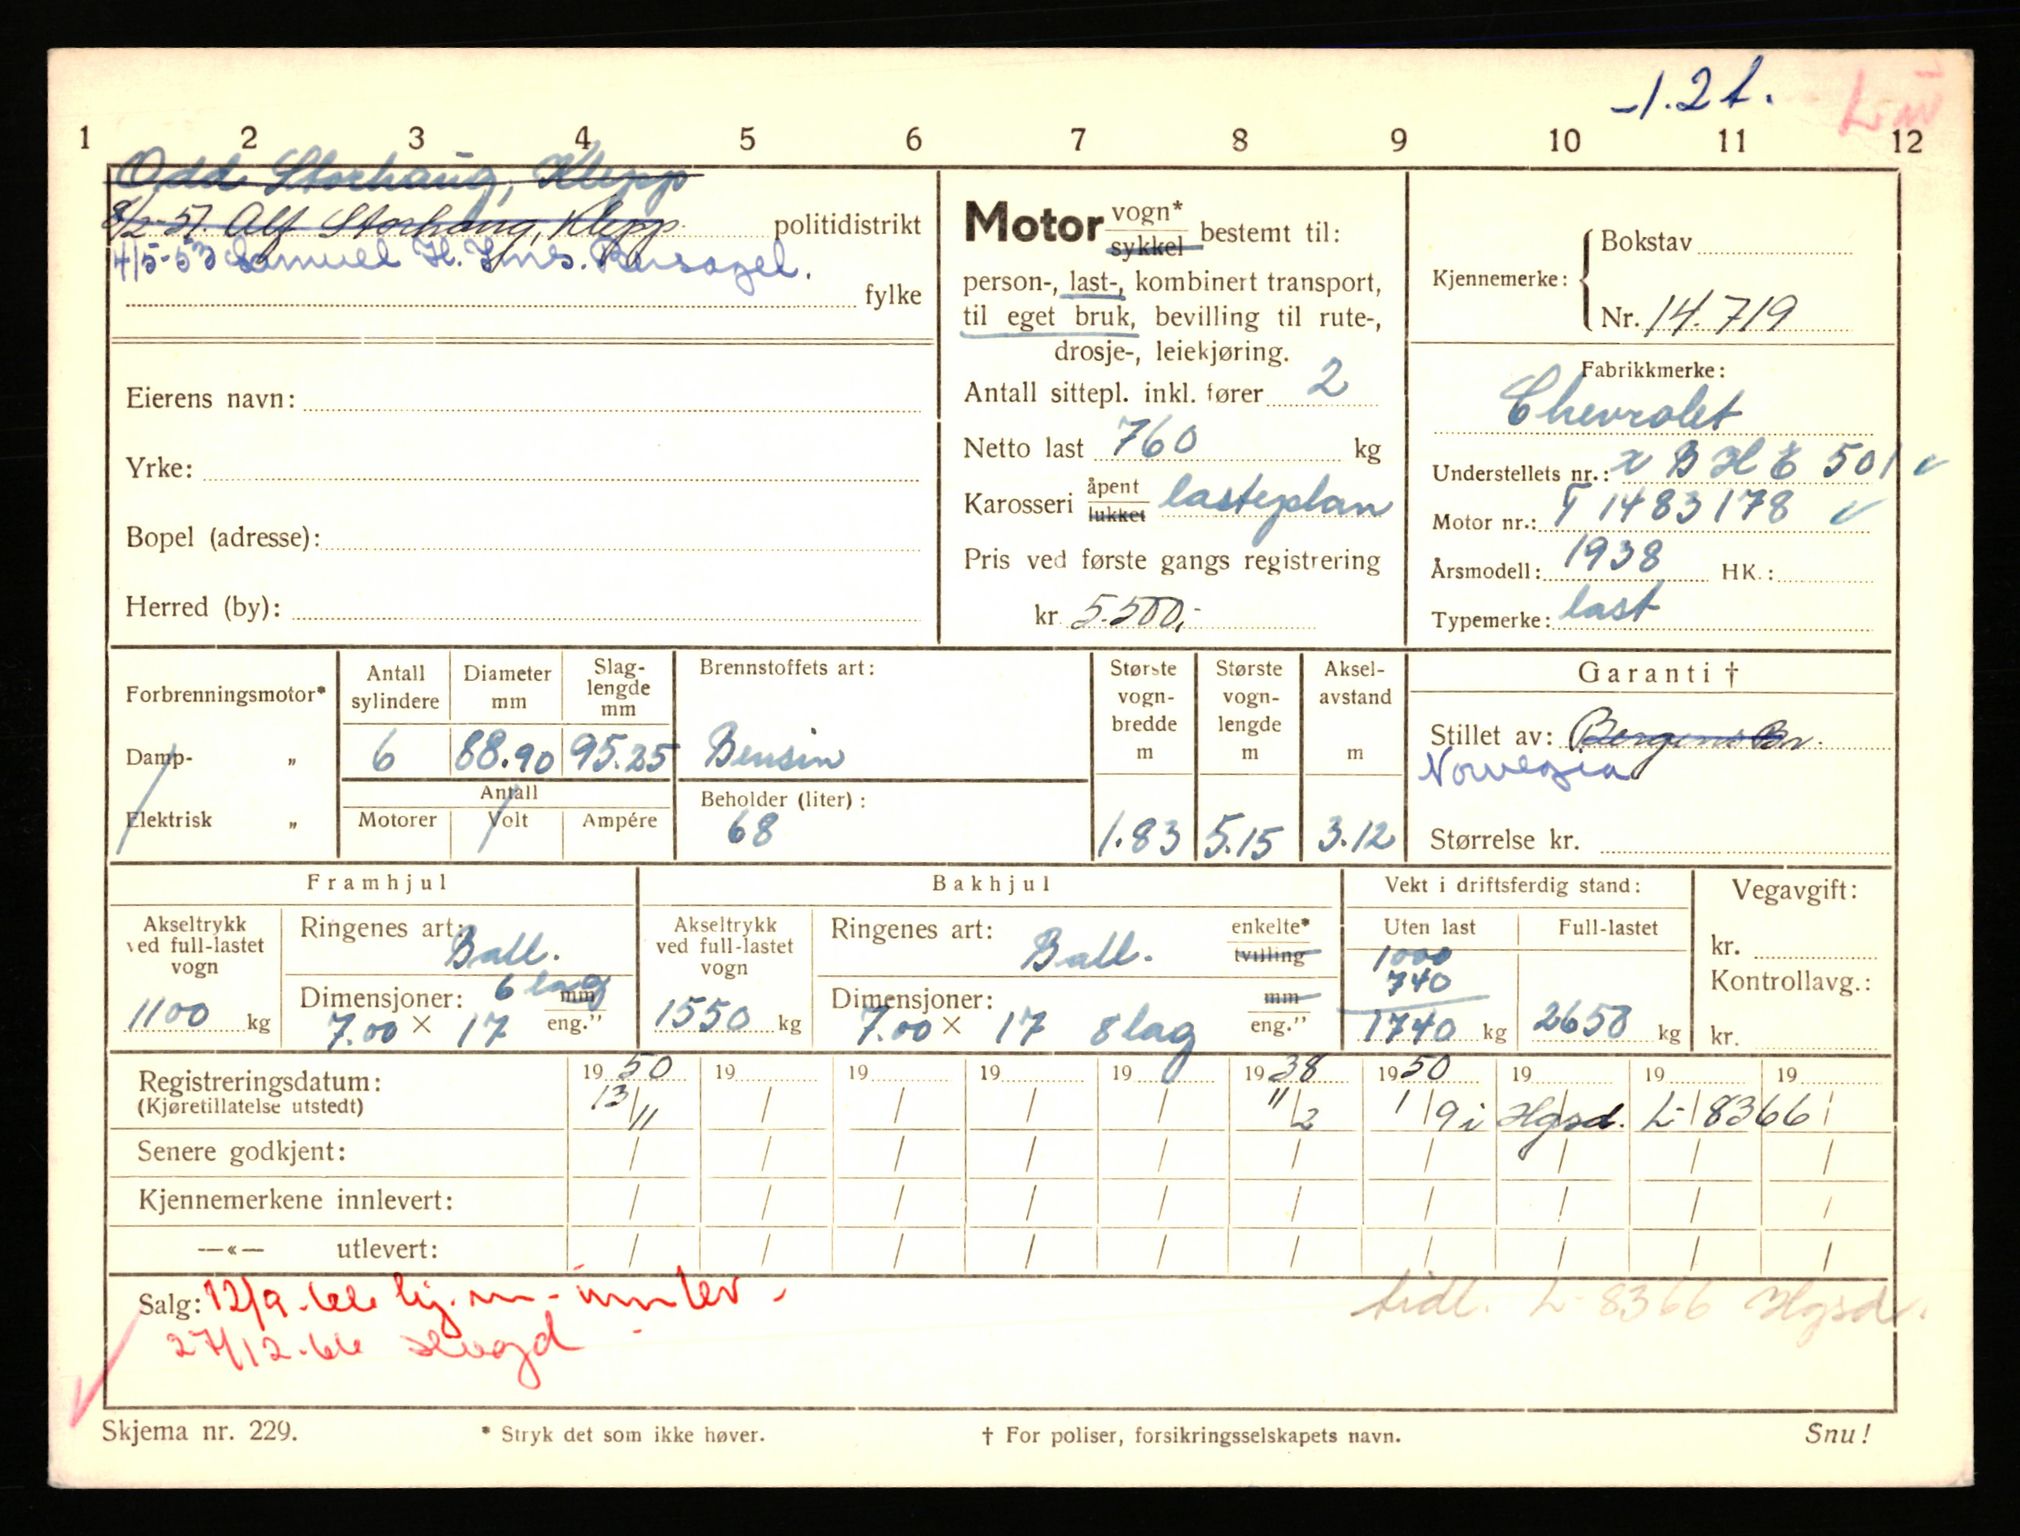 -1.2t.
L
1 2 3 4 5 6 7 8 9 10 11 12
Odd Storhaug, Klepp
8/2-51. Alf Storhaug, Klepp. politidistrikt
4/5-53 Samuel H.
fylke
Eierens navn:
Yrke:
Bopel (adresse):
Herred (by):
Motor vogn* sykkel bestemt til:
person-, last-, kombinert transport,
til eget bruk, bevilling til rute-,
drosje-, leiekjøring.
Antall sittepl. inkl. fører 2
Netto last 760 kg
Karosseri åpent lukket lasteplan
Pris ved første gangs registrering
kr 5.500,-
Kjennemerke: Bokstav
Nr. 14.719
Fabrikkmerke:
Chevrolet
Understellets nr.: x B H E 501
Motor nr.: T 1483178
Årsmodell: 1938 HK.:
Typemerke: last
Forbrenningsmotor*
Damp- „
Elektrisk „
Antall sylindere Diameter mm Slag-lengde mm
6 88.90 95.25
Antall
Motorer Volt Ampére
Brennstoffets art:
Bensin
Beholder (liter):
68
Største vogn-bredde m 1.83
Største vogn-lengde m 5.15
Aksel-avstand m 3.12
Garanti †
Stillet av: Bergens Br.
Norvegia
Størrelse kr.
Framhjul
Akseltrykk ved full-lastet vogn
1100 kg
Ringenes art: Ball.
6 lag
Dimensjoner: mm
7.00 × 17 eng."
Bakhjul
Akseltrykk ved full-lastet vogn
1550 kg
Ringenes art: Ball. enkelte* tvilling
Dimensjoner: mm
7.00 × 17 8 lag eng."
Vekt i driftsferdig stand:
Uten last Full-lastet
1000
740
1740 kg 2650 kg
Vegavgift:
kr.
Kontrollavg.:
kr.
Registreringsdatum: 19 50 19 19 19 19 19 38 19 50 19 19 19
(Kjøretillatelse utstedt) 13/11 / / / / 11/2 1/9 i Hgsd. L-8366
Senere godkjent: / / / / / / / / / /
Kjennemerkene innlevert: / / / / / / / / / /
—«— utlevert: / / / / / / / / / /
Salg: 12/9-66 kj.m-innlev.
tidl. L-8366 Hgsd.
27/12-66
Skjema nr. 229. * Stryk det som ikke høver. † For poliser, forsikringsselskapets navn. Snu!